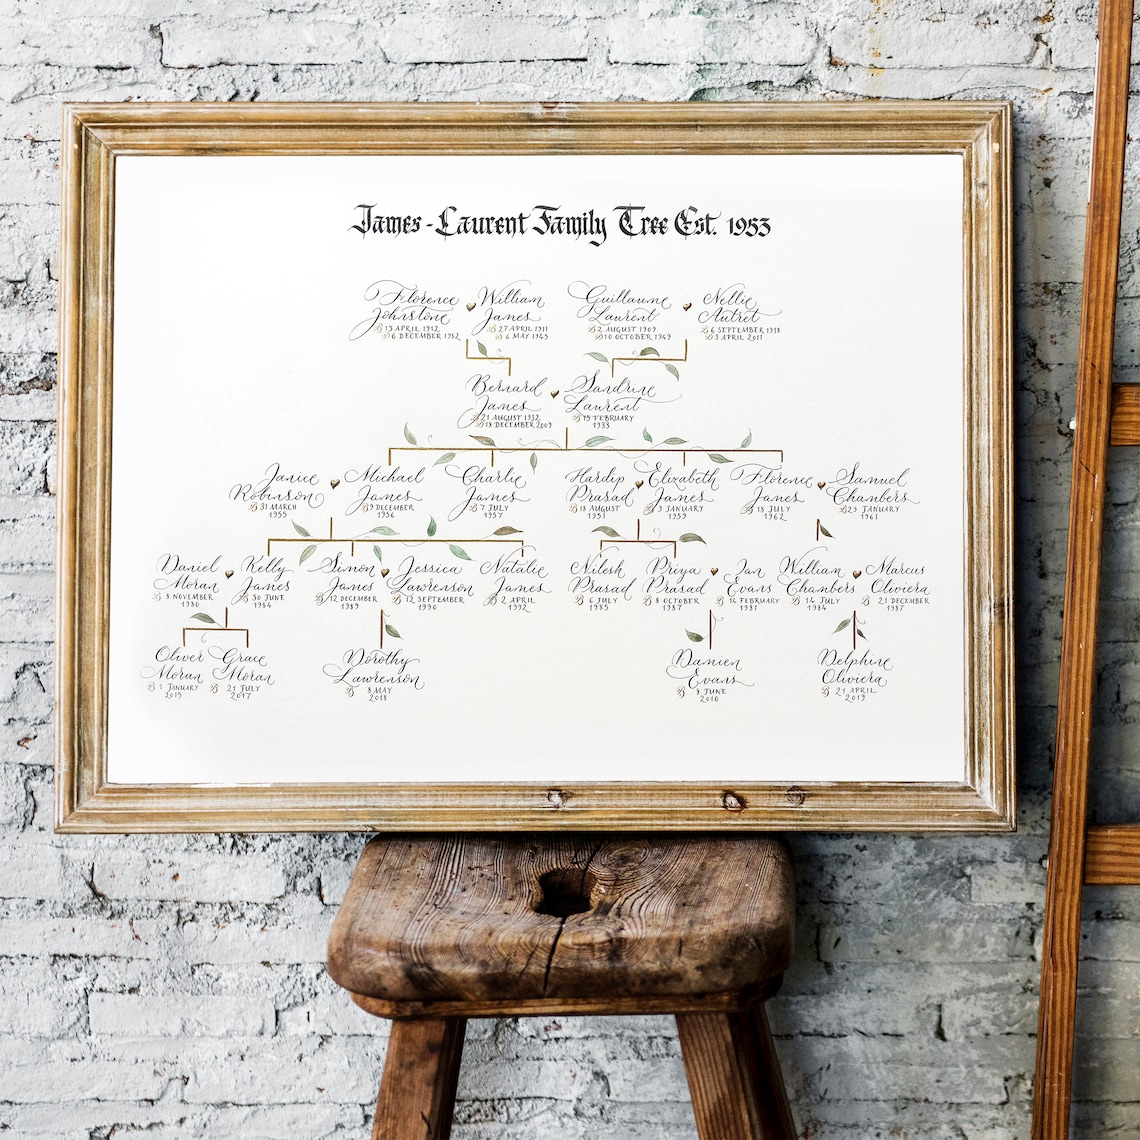 James-Laurent Family Tree Est. 1953
Florence Johnstone
B 13 APRIL 1912
D 6 DECEMBER 1982
William James
B 27 APRIL 1911
D 6 MAY 1945
Guillaume Laurent
B 2 AUGUST 1909
D 10 OCTOBER 1949
Nellie Autret
B 6 SEPTEMBER 1918
D 3 APRIL 2011
Bernard James
B 21 AUGUST 1932
D 18 DECEMBER 2009
Sandrine Laurent
B 19 FEBRUARY
1933
Janice
Robinson
B 31 MARCH
1955
Michael
James
B 9 DECEMBER
1956
Charlie
James
B 7 JULY
1957
Hardip
Prasad
B 18 AUGUST
1951
Elizabeth
James
B 9 JANUARY
1959
Florence
James
B 18 JULY
1962
Samuel
Chambers
B 29 JANUARY
1961
Daniel
Moran
B 8 NOVEMBER
1980
Kelly
James
B 30 JUNE
1984
Simon
James
B 12 DECEMBER
1989
Jessica
Lawrenson
B 12 SEPTEMBER
1990
Natalie
James
B 2 APRIL
1992
Nilesh
Prasad
B 6 JULY
1985
Priya
Prasad
B 8 OCTOBER
1987
Ian
Evans
B 14 FEBRUARY
1981
William
Chambers
B 14 JULY
1984
Marcus
Oliviera
B 21 DECEMBER
1987
Oliver
Moran
B 1 JANUARY
2015
Grace
Moran
B 21 JULY
2017
Dorothy
Lawrenson
B 8 MAY
2018
Damien
Evans
B 9 JUNE
2010
Delphine
Oliviera
B 21 APRIL
2019